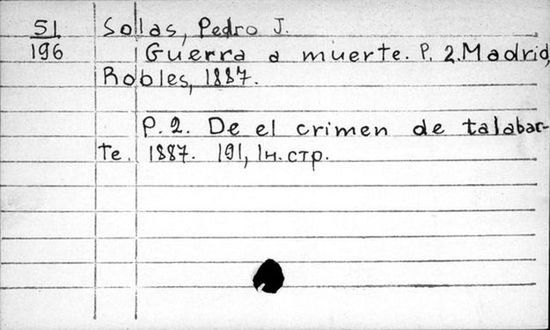 51
196
Solas, Pedro J.
Guerra a muerte. P. 2. Madrid,
Robles, 1887.
P. 2. De el crimen de talabar-
te. 1887. 191, 1н. стр.